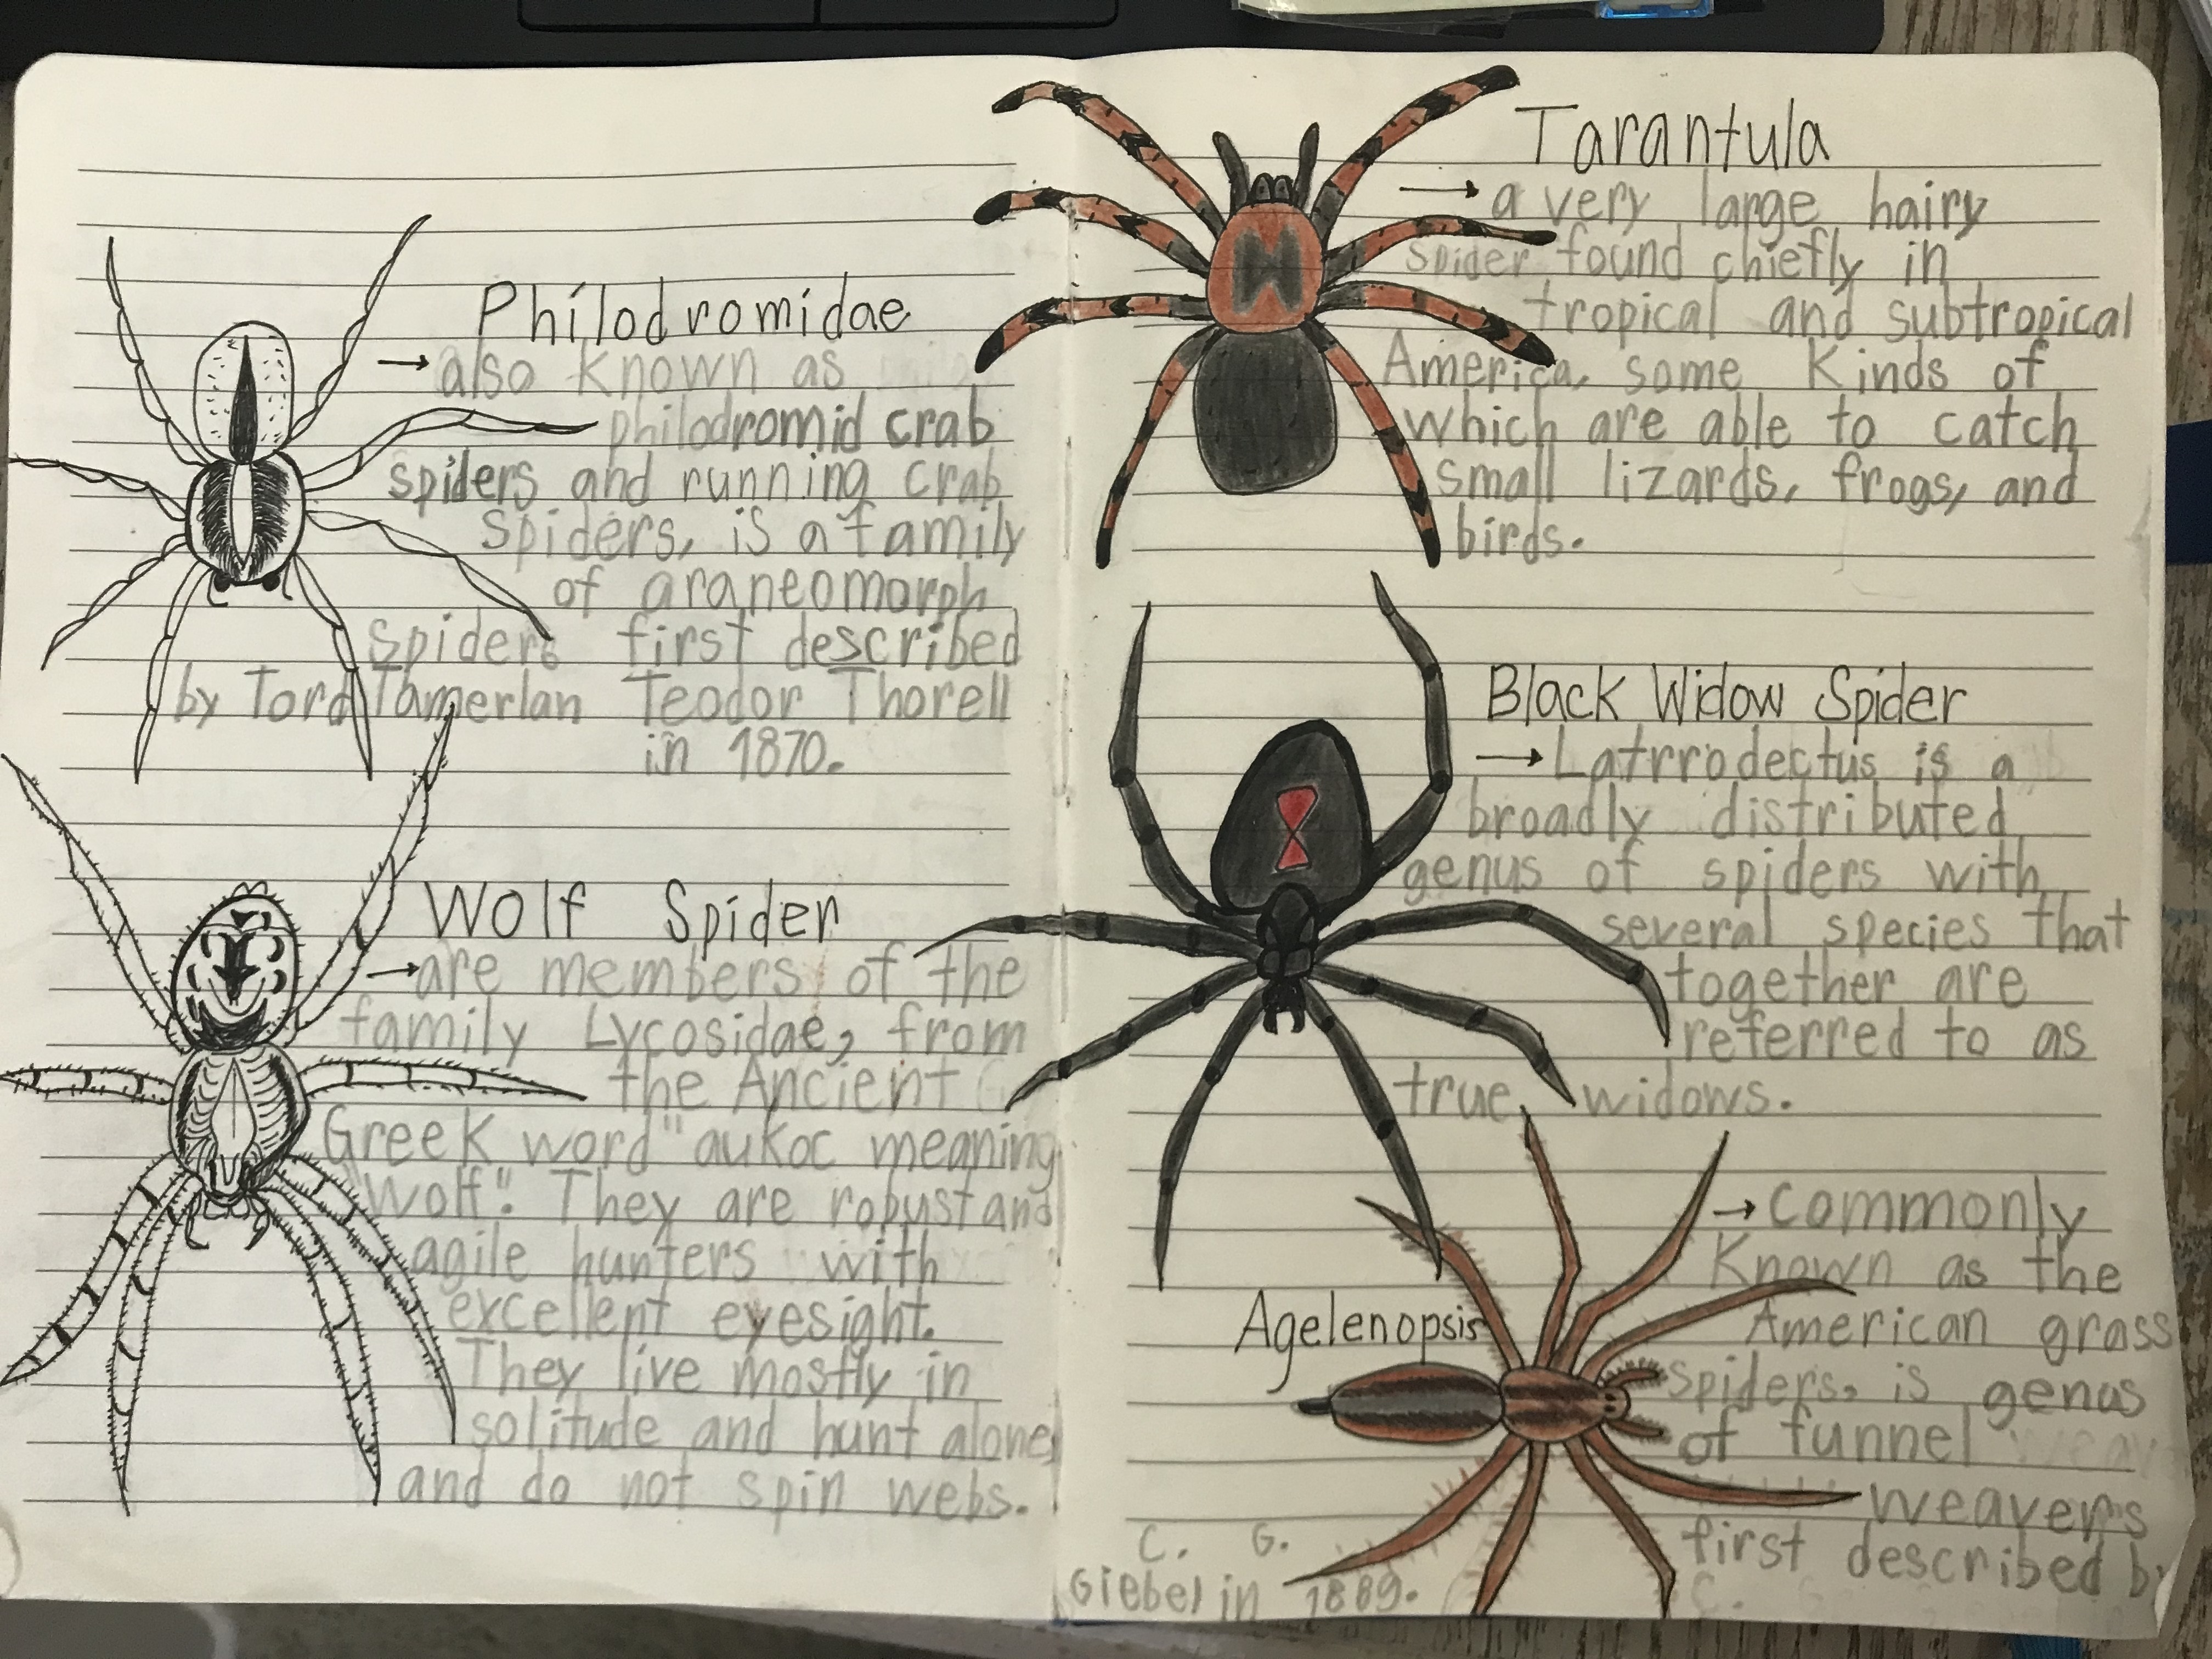 Philodromidae
→ also known as
philodromid crab
spiders and running crab
spiders, is a family
of araneomorph
spiders first described
by Tord Tamerlan Teodor Thorell
in 1870.
Wolf Spider
→ are members of the
family Lycosidae, from
the Ancient
Greek word "aukoc meaning
"wolf". They are robust and
agile hunters with
excellent eyesight.
They live mostly in
solitude and hunt alone,
and do not spin webs.
Tarantula
→ a very large hairy
spider found chiefly in
tropical and subtropical
America, some kinds of
which are able to catch
small lizards, frogs, and
birds.
Black Widow Spider
→ Latrrodectus is a
broadly distributed
genus of spiders with
several species that
together are
referred to as
true widows.
Agelenopsis
→ commonly
known as the
American grass
spiders, is genus
of funnel
weavers
first described by
C. G.
Giebel in 1889.